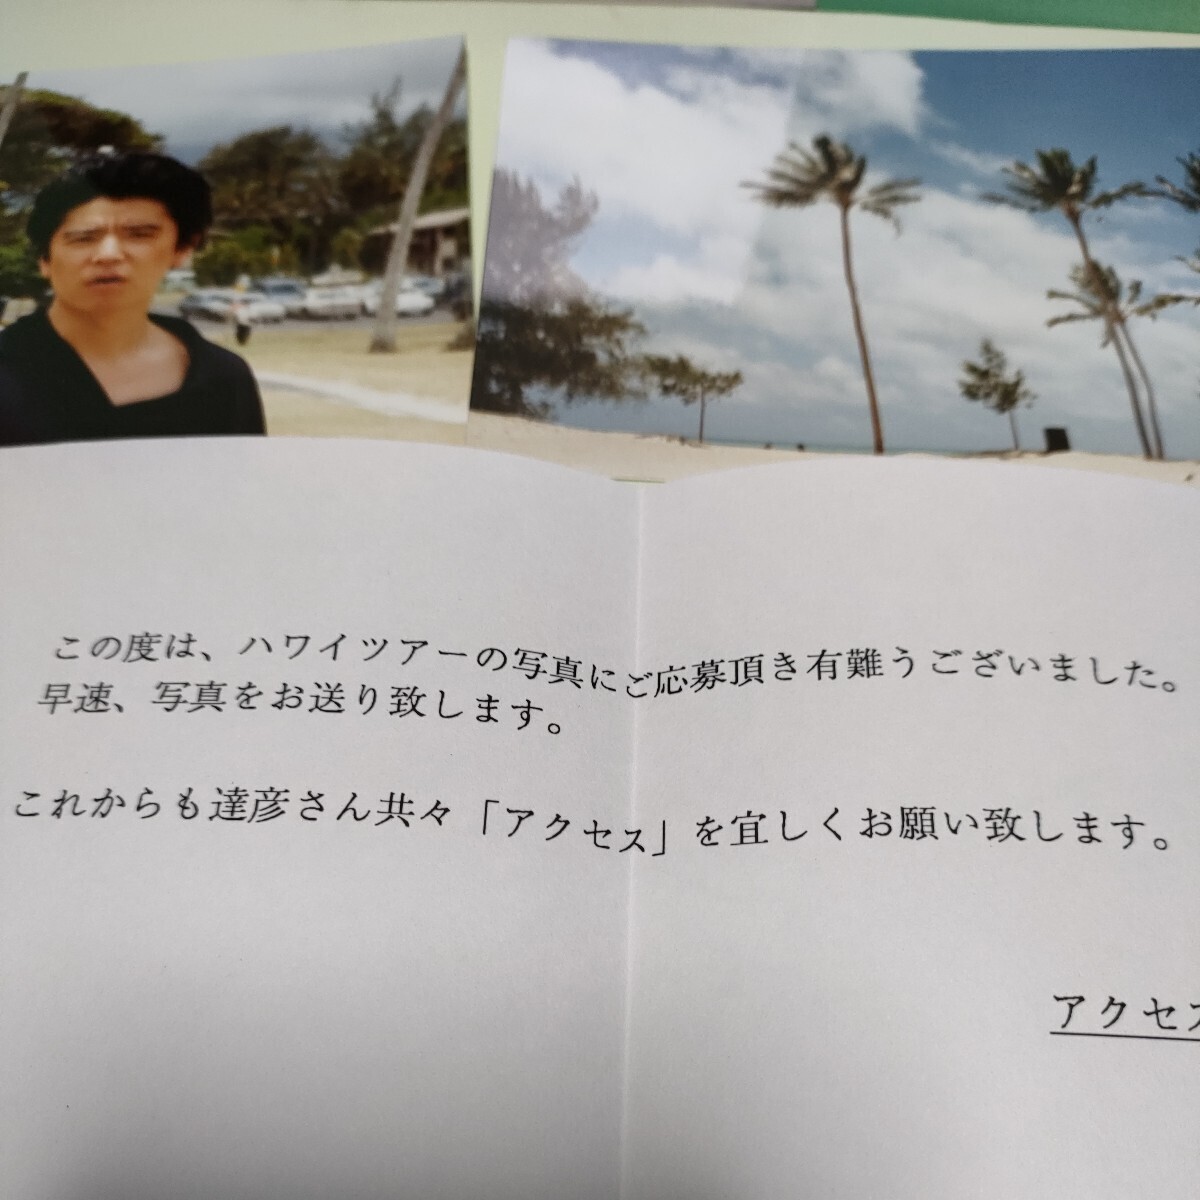 この度は、ハワイツアーの写真にご応募頂き有難うございました。
早速、写真をお送り致します。
これからも達彦さん共々「アクセス」を宜しくお願い致します。
アクセス